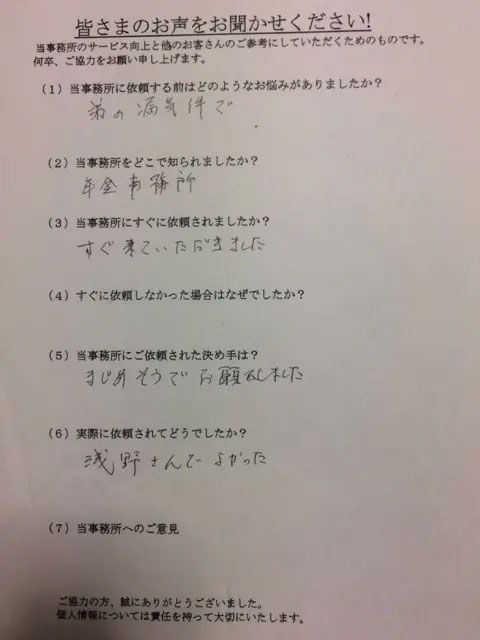 皆さまのお声をお聞かせください!
当事務所のサービス向上と他のお客さんのご参考にしていただくためのものです。
何卒、ご協力をお願い申し上げます。
(1)当事務所に依頼する前はどのようなお悩みがありましたか?
弟の病気件で
(2)当事務所をどこで知られましたか?
年金事務所
(3)当事務所にすぐに依頼されましたか?
すぐ来ていただきました
(4)すぐに依頼しなかった場合はなぜでしたか?
(5)当事務所にご依頼された決め手は?
まじめそうでお願しました
(6)実際に依頼されてどうでしたか?
浅野さんでよかった
(7)当事務所へのご意見
ご協力の方、誠にありがとうございました。
個人情報については責任を持って大切にいたします。